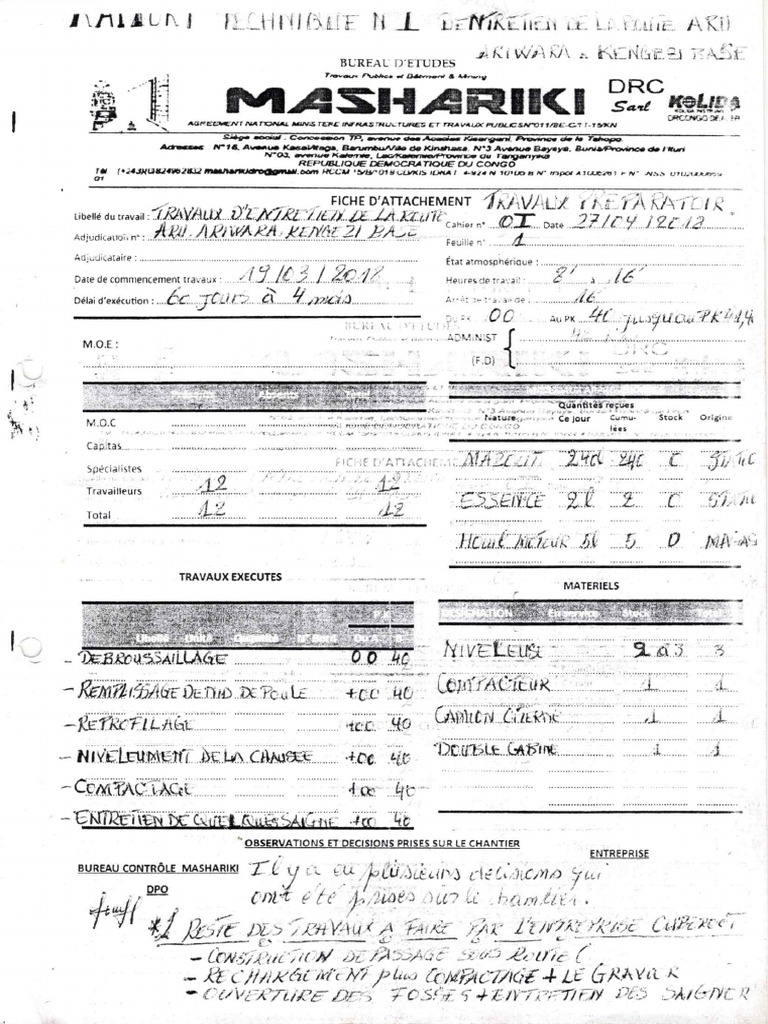 RAPPORT TECHNIQUE N 1 D'ENTRETIEN DE LA ROUTE ARU
ARIWARA - KENGEZI BASE
BUREAU D'ETUDES
Travaux Publics et Bâtiment & Mining
MASHARIKI DRC Sarl KOLIDA
AGREEMENT NATIONAL MINISTERE INFRASTRUCTURES ET TRAVAUX PUBLICS
Siège social : Concession TP, avenue des Acacias Kisangani, Province de la Tshopo.
Adresses N°16, Avenue Kasaï/Itaga, Barumbu/Ville de Kinshasa. N°3 Avenue Bayaya, Bunia/Province de l'Ituri
N°03, avenue Kalemie, Lac/Kalemie/Province du Tanganyika
REPUBLIQUE DEMOCRATIQUE DU CONGO
FICHE D'ATTACHEMENT TRAVAUX PREPARATOIR
Libellé du travail : TRAVAUX D'ENTRETIEN DE LA ROUTE
Cahier n° 01 Date 27/04/2018
Adjudication n° : ARU. ARIWARA. KENGEZI BASE
Feuille n° 1
Adjudicataire :
État atmosphérique :
Date de commencement travaux : 19/03/2018
Heures de travail : 8' à 16'
Délai d'exécution : 60 jours à 4 mois
Arrêt de travail de : 16'
Du PK 00 Au PK 40 jusqu'au PK 41,4
M.O.E :
ADMINIST
(F.D)
Quantités reçues
Nature Ce jour Cumu-lées Stock Origine
M.O.C
Capitas
MAZOUT 240 240 0 STATIO
Spécialistes
Travailleurs 12 12
ESSENCE 2l 2 0 STATIO
Total 12 12
HOUIL MOTEUR 5l 5 0 MAGAS
TRAVAUX EXECUTES
MATERIELS
Libellé Unité Quantité
DESIGNATION
- DEBROUSSAILLAGE 00 40
NIVELEUSE 2 à 3 3
- REMPLISSAGE DE NID DE POULE +00 40
COMPACTEUR 1 1
- REPROFILAGE +00 40
CAMION CITERNE 1 1
- NIVELEUMENT DE LA CHAUSEE +00 40
DOUBLE CABINE 1 1
- COMPACTAGE +00 40
- ENTRETIEN DE QUELQUES SAIGNE +00 40
OBSERVATIONS ET DECISIONS PRISES SUR LE CHANTIER
ENTREPRISE
BUREAU CONTRÔLE MASHARIKI
DPO
Il y a eu plusieurs decisions qui
ont été prises sur le chantier.
*1 RESTE DES TRAVAUX A FAIRE PAR L'ENTREPRISE
- CONSTRUCTION DE PASSAGE SOUS ROUTE
- RECHARGEMENT plus COMPACTAGE + LE GRAVIER
- OUVERTURE DES FOSSES + ENTRETIEN DES SAIGNER